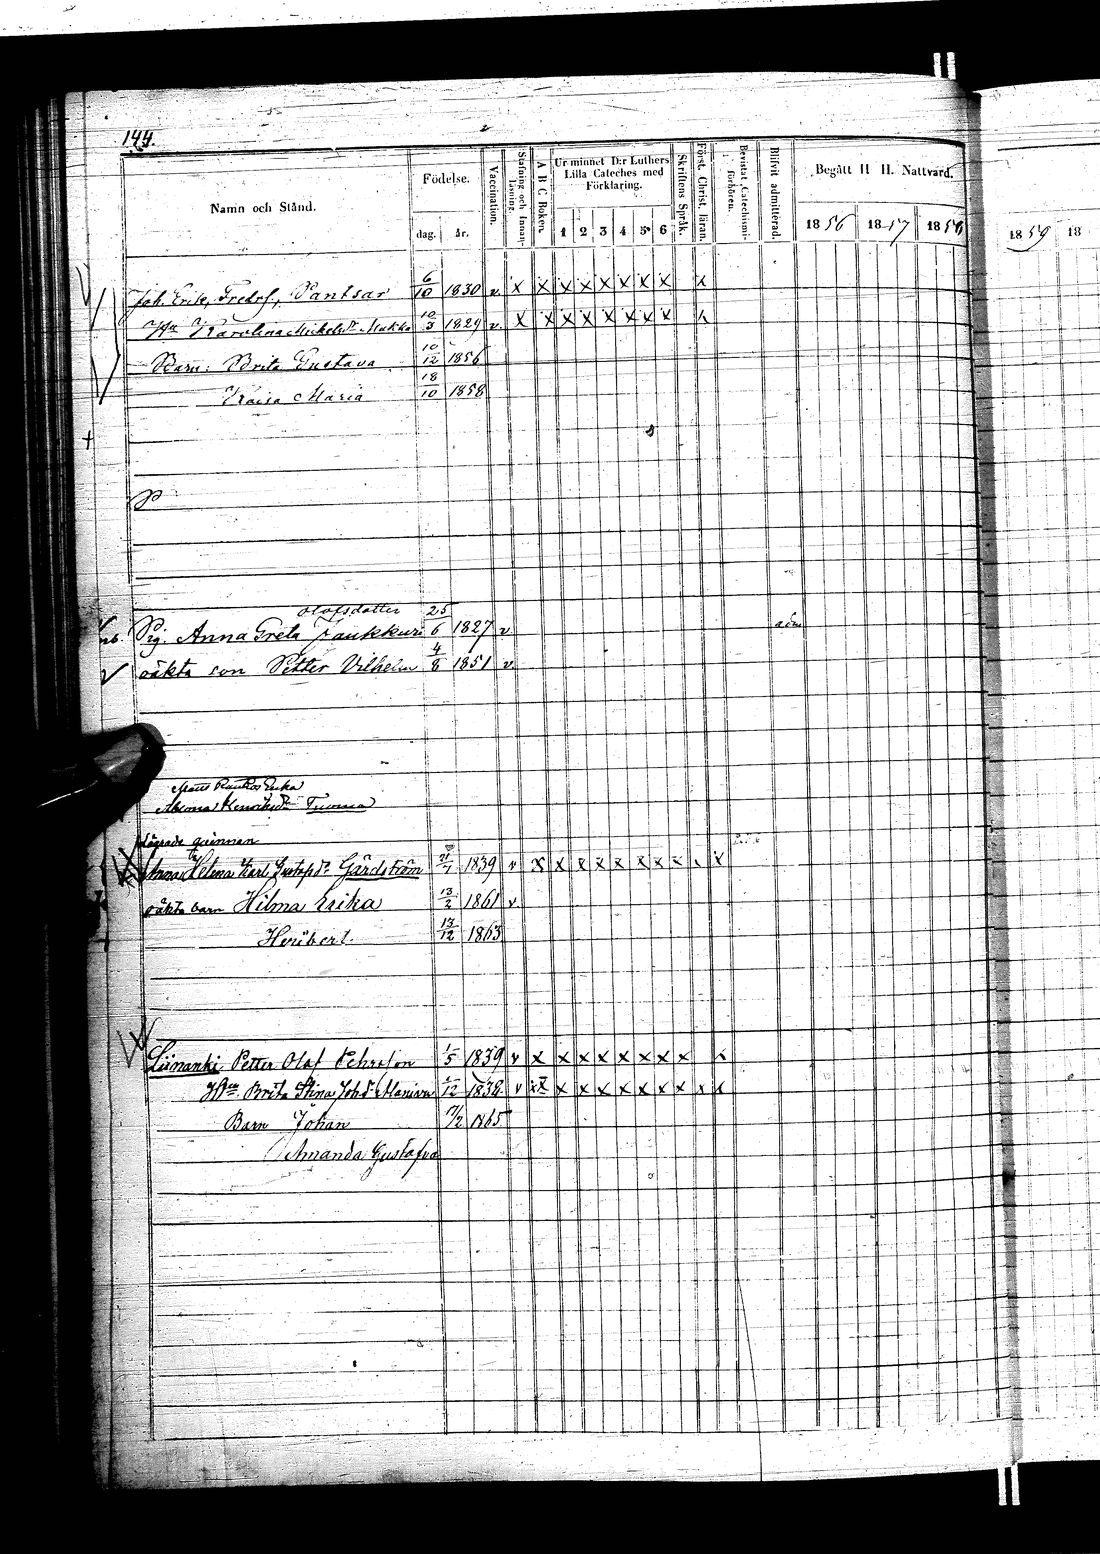 144.
Namn och Stånd.
Födelse.
dag. år.
Vaccination.
Stafning och Innanläsning.
A B C Boken.
Ur minnet D:r Luthers Lilla Cateches med Förklaring.
1 2 3 4 5 6
Skriftens Språk.
Först. Christ. läran.
Bevistat Catechismiförhören.
Blifvit admitterad.
Begått H H. Nattvard.
1856 1857 1858 1859 18
Joh. Erik Fredrs., Pantsar 6/10 1830 v. X X X X X X X X X
Karolina Mickelsdr 10/3 1829 v. X X X X X X X X X
Barn: Brita Gustava 10/12 1856
Kaisa Maria 18/10 1858
Olofsdotter
Pig. Anna Greta 25/6 1827 v
oäkta son Petter Vilhelm 4/8 1851 v
Lägrade qvinnan
Anna Helena Karl Gustafsdr Gärdström 1839 v X X X X X X X X X X
oäkta barn Hilma Erika 13/2 1861 v
Heribert. 13/12 1863
Liinanki Petter Olof Pehrsson 1/5 1839 v X X X X X X X X X
Brita Stina Johdr 1838 v X X X X X X X X X X
Barn Johan 1865
Amanda Gustafva